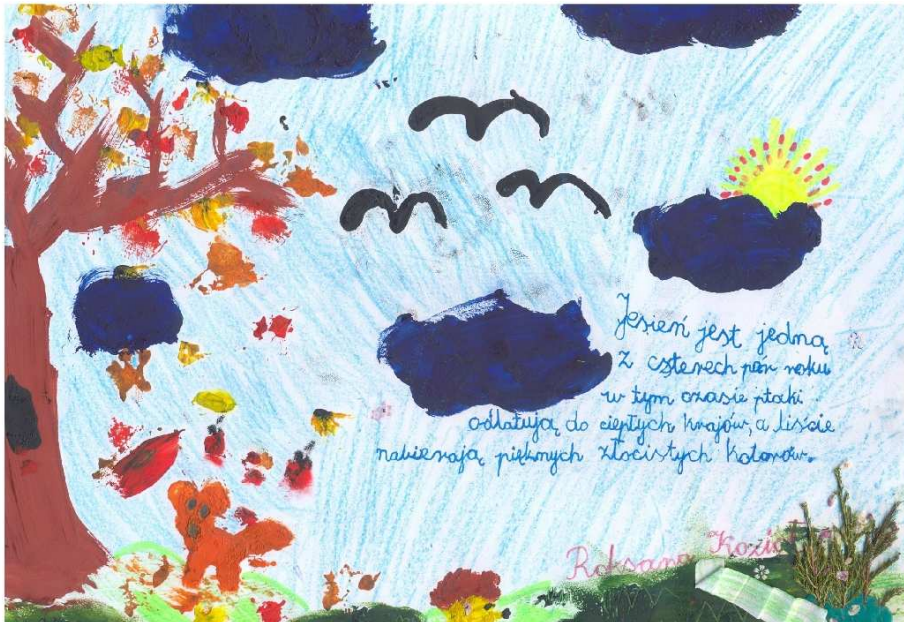 Jesień jest jedną
z czterech pór roku
w tym czasie ptaki
odlatują do ciepłych krajów, a liście
nabierają pięknych złocistych kolorów.
Roksana Kozioł